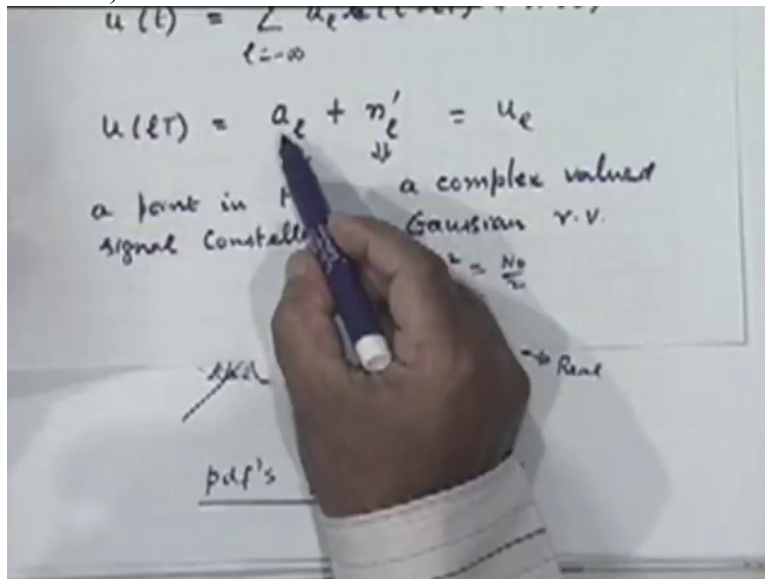 u(t) = Σ
l=-∞
u(lT) = a_l + n'_l = u_l
⇓
a point in
signal Constell
a complex valued
Gaussian r.v.
² = N₀/2
→ Real
pdf's